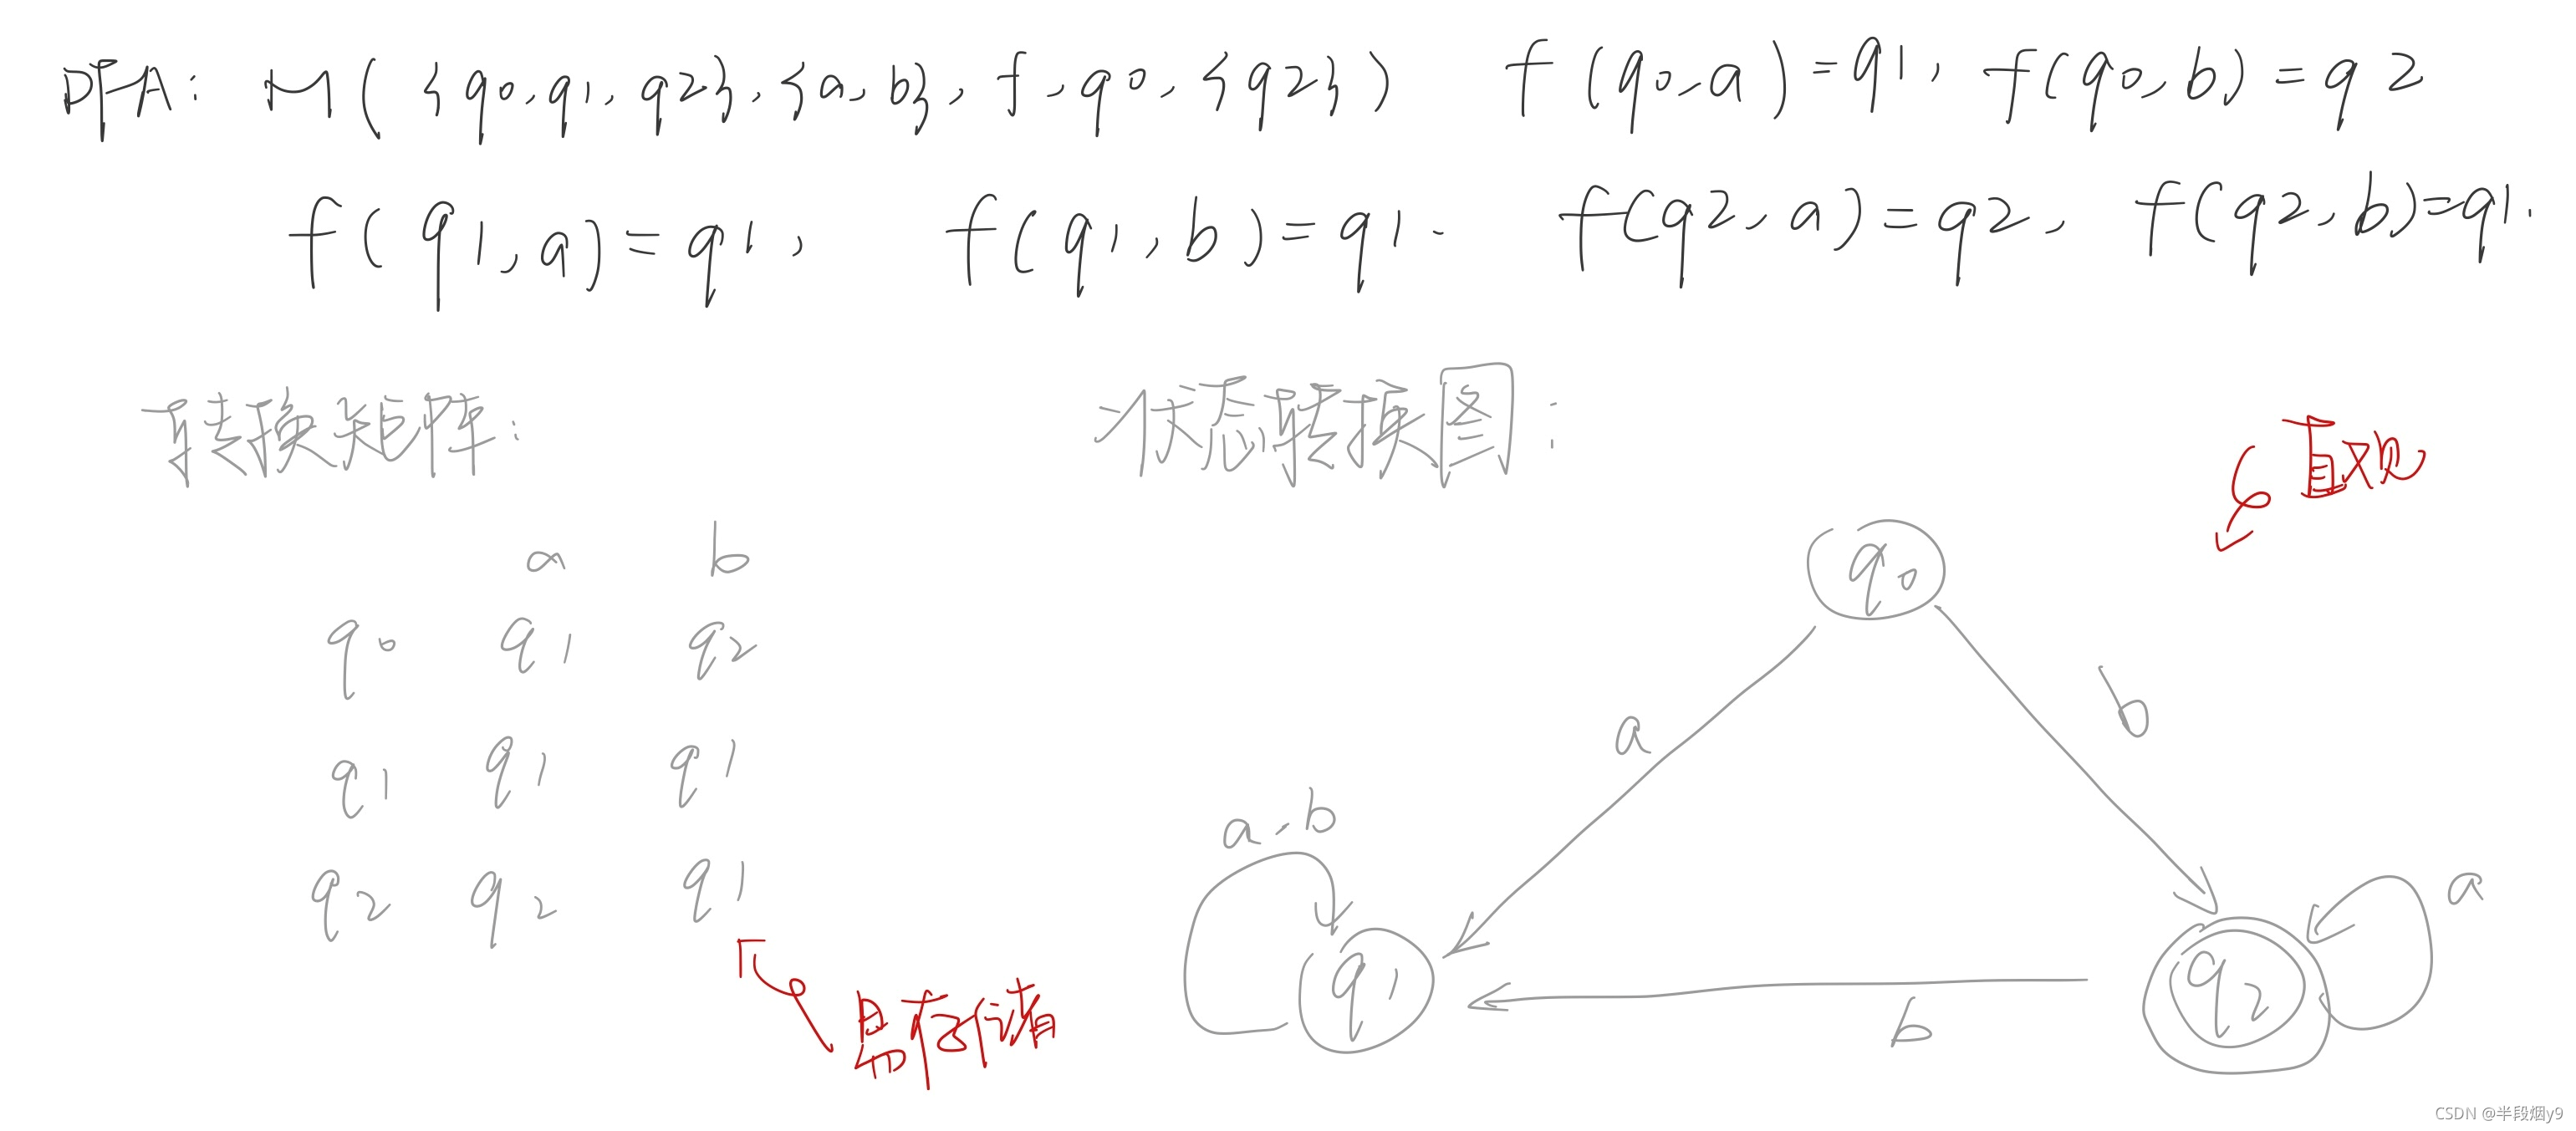 DFA: M({q0,q1,q2},{a,b},f,q0,{q2}) f(q0,a)=q1, f(q0,b)=q2
f(q1,a)=q1, f(q1,b)=q1. f(q2,a)=q2, f(q2,b)=q1.
转换矩阵:
a b
q0 q1 q2
q1 q1 q1
q2 q2 q1
易存储
状态转换图:
直观
q0
a
b
a,b
a
q1
q2
b
CSDN @半段烟y9